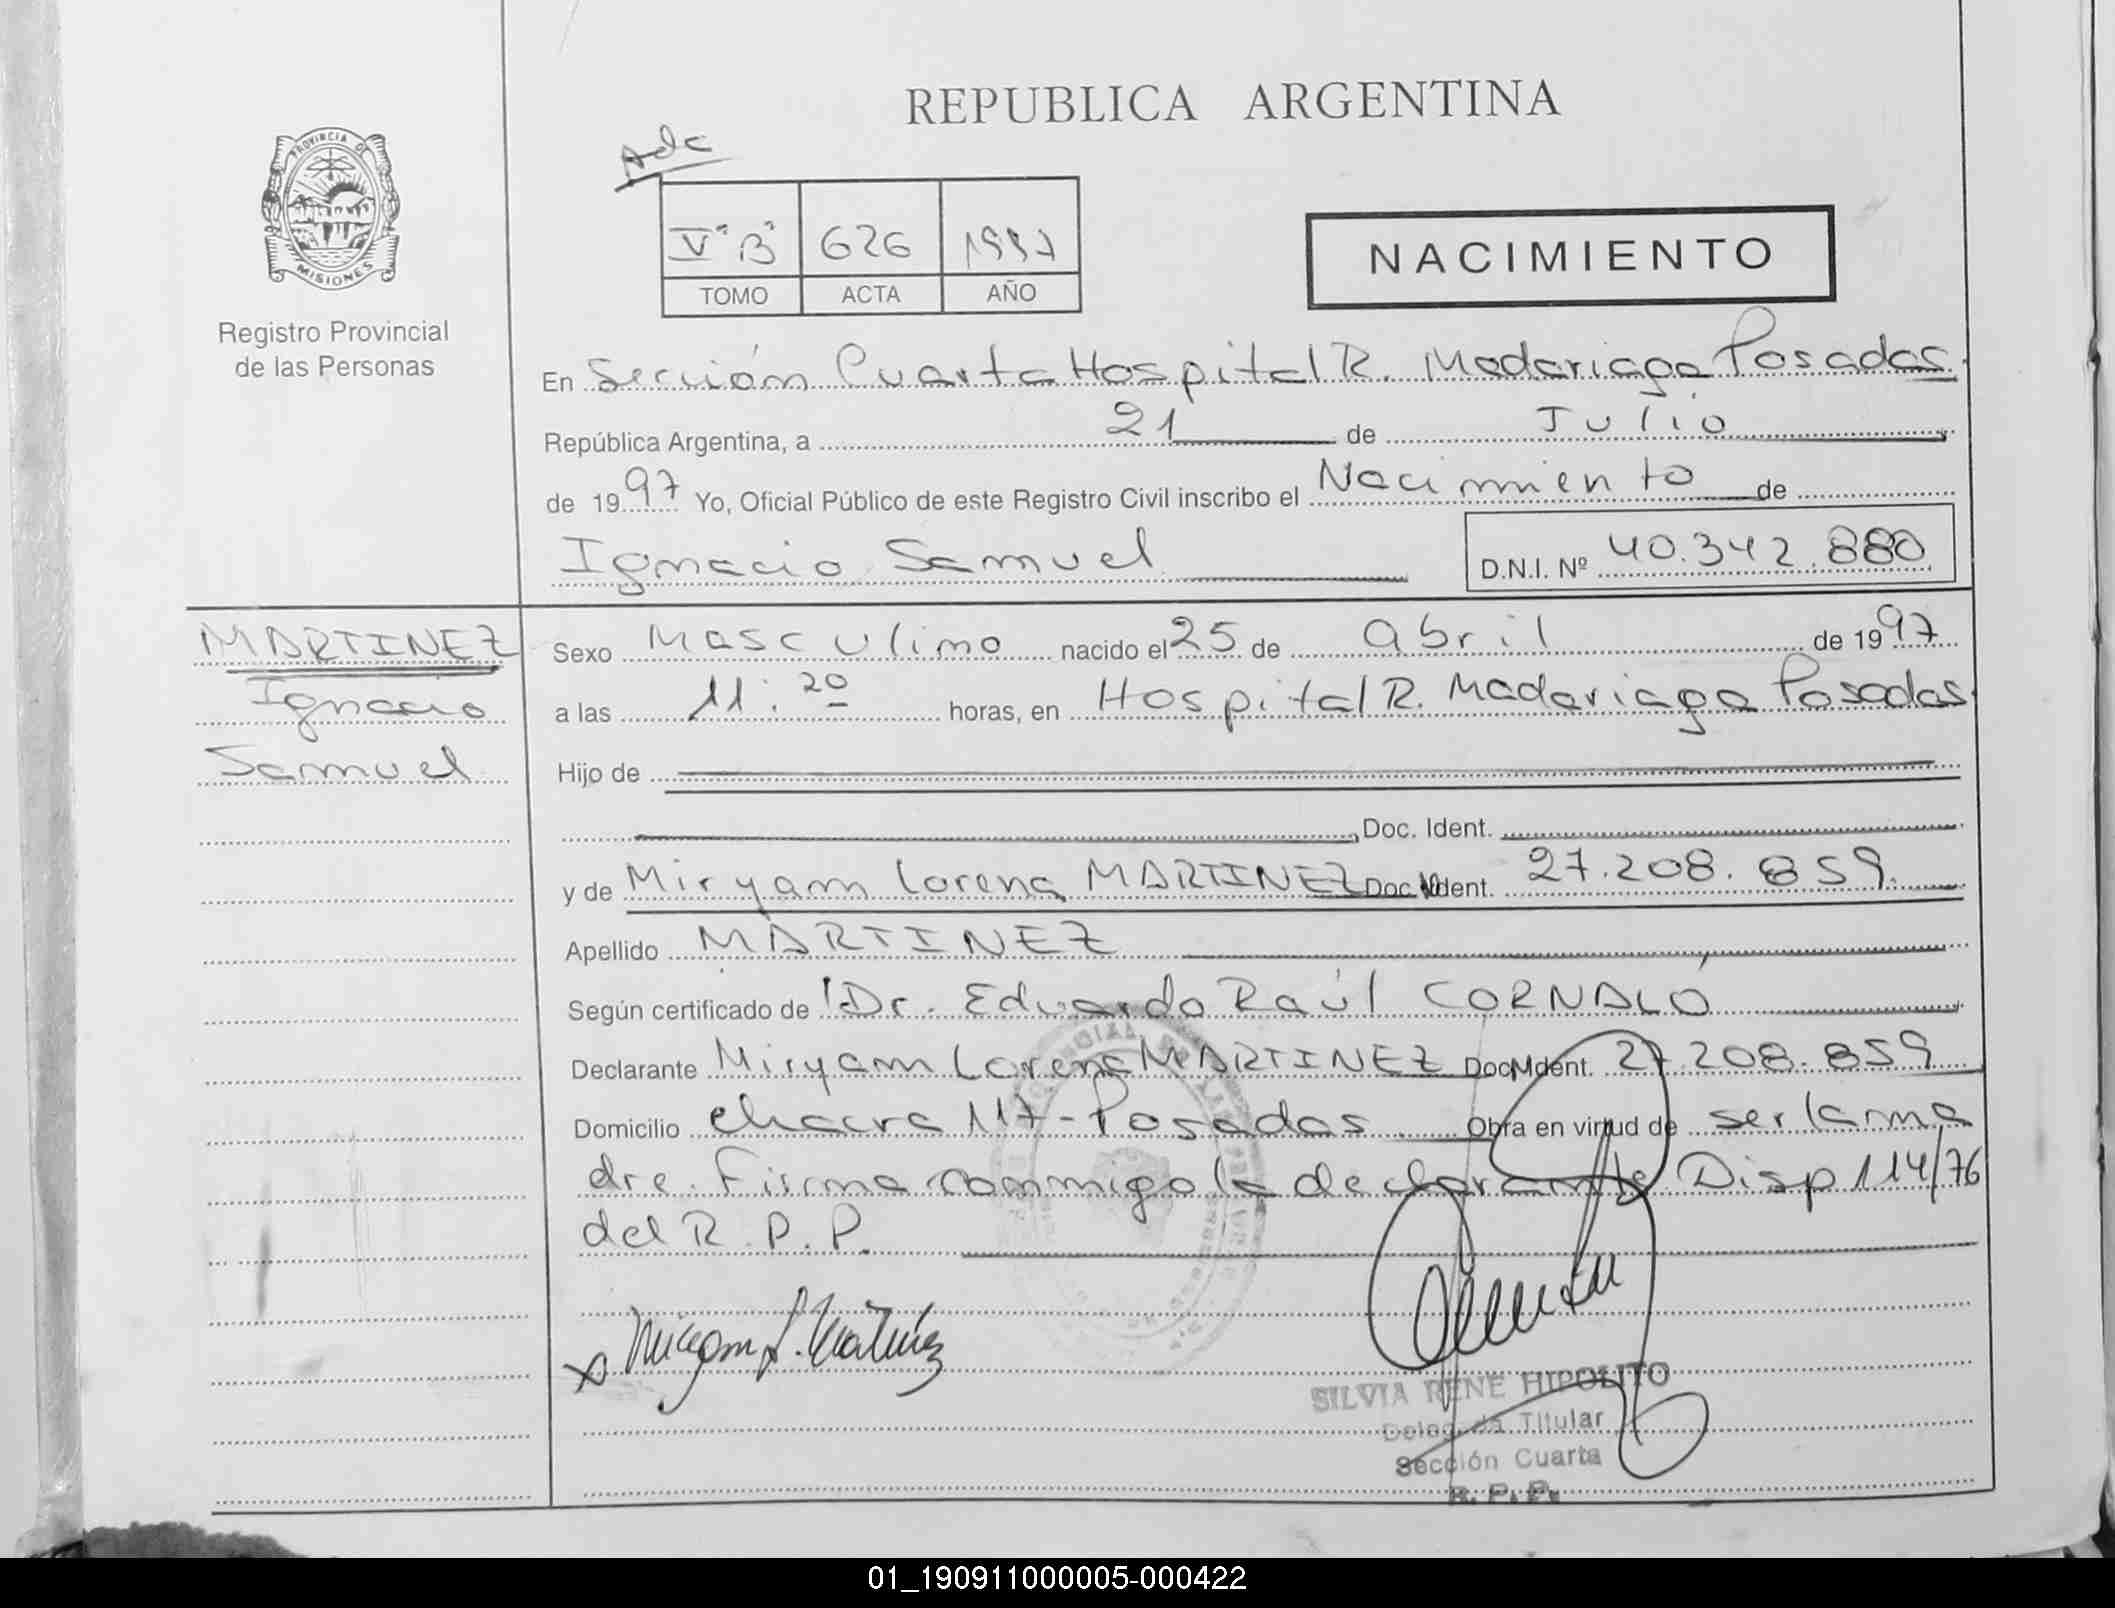 REPUBLICA ARGENTINA
Adc
V "B" 626 1997
TOMO ACTA AÑO
NACIMIENTO
PROVINCIA D
MISIONES
Registro Provincial
de las Personas
En Sección Cuarta Hospital R. Madariaga Posadas.
República Argentina, a 21 de Julio
de 1997 Yo, Oficial Público de este Registro Civil inscribo el Nacimiento de
Ignacio Samuel D.N.I. Nº 40.342.880
MARTINEZ
Ignacio
Samuel
Sexo Masculino nacido el 25 de abril de 1997
a las 11:20 horas, en Hospital R. Madariaga Posadas.
Hijo de
Doc. Ident.
y de Miryam Lorena MARTINEZ Doc. Ident. 27.208.859.
Apellido MARTINEZ
Según certificado de Dr. Eduardo Raúl CORNALÓ
Declarante Miryam Lorena MARTINEZ Doc. Ident. 27.208.859
Domicilio Chacra 117 - Posadas. Obra en virtud de ser la ma
dre. Firma conmigo la declarante Disp 114/76
del R.P.P.
Miryam L. Martinez
SILVIA RENE HIPOLITO
Delegada Titular
Sección Cuarta
R. P. P.
01_190911000005-000422